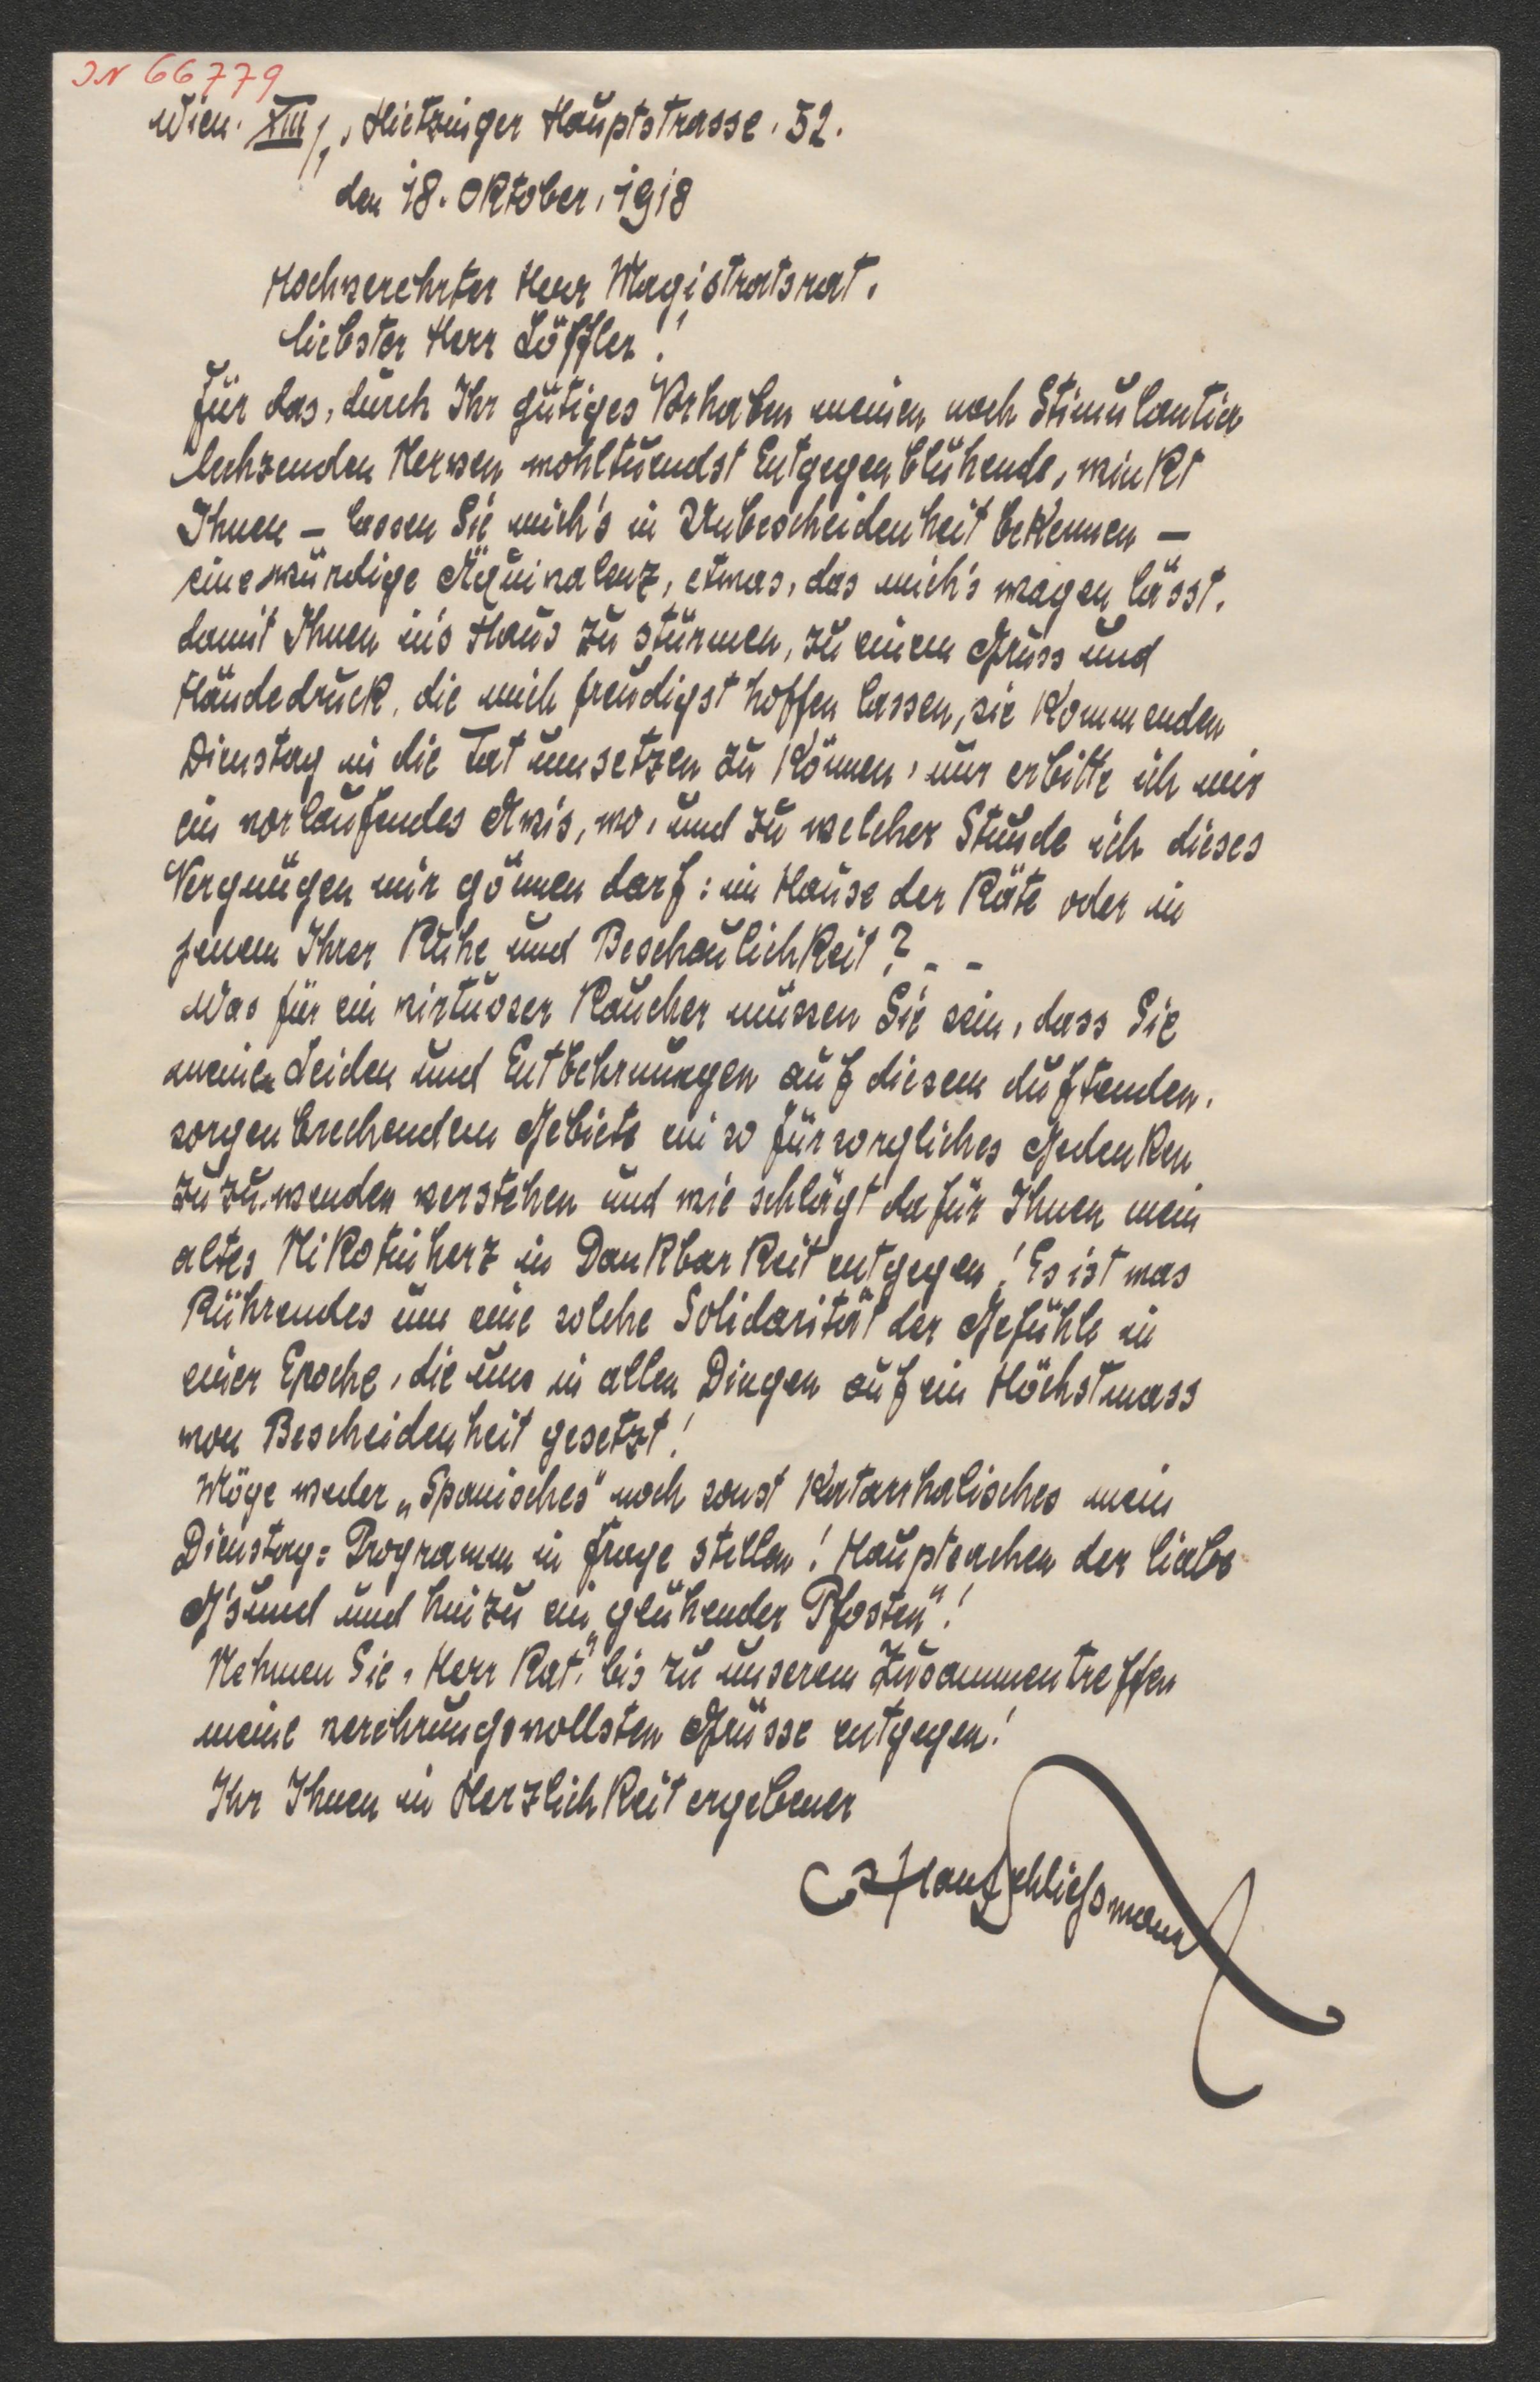 IN 66779
Wien. XIII/1, Hietzinger Hauptstrasse. 52.
den 18. Oktober, 1918
Hochverehrter Herr Magistratsrat,
liebster Herr Löffler!
Für das, durch Ihr gütiges Vorhaben meinen nach Stimulantia
lechzenden Nerven wohltuendst Entgegenblühende, winkt
Ihnen – lassen Sie mich's in Unbescheidenheit bekennen –
eine würdige Äquivalenz, etwas, das mich's wagen lässt,
damit Ihnen in's Haus zu stürmen, zu einem Gruss und
Händedruck, die mich freudigst hoffen lassen, sie kommenden
Dienstag in die Tat umsetzen zu können, nur erbitte ich mir
ein vorlaufendes Avis, wo, und zu welcher Stunde ich dieses
Vergnügen mir gönnen darf: im Hause der Räte oder in
jenem Ihrer Ruhe und Beschaulichkeit? – –
Was für ein virtuoser Raucher müssen Sie sein, dass Sie
meinen Leiden und Entbehrungen auf diesem duftenden,
sorgenbrechendem Gebiete ein so fürsorgliches Gedenken
zuzuwenden verstehen und wie schlägt dafür Ihnen mein
altes Nikotinherz in Dankbarkeit entgegen! Es ist was
Rührendes um eine solche Solidarität der Gefühle in
einer Epoche, die uns in allen Dingen auf ein Höchstmass
von Bescheidenheit gesetzt!
Möge weder „Spanisches" noch sonst Katarrhalisches mein
Dienstag=Programm in Frage stellen! Hauptsachen der liabe
G'sund und hinzu ein „glühender Pfosten"!
Nehmen Sie, Herr Rat, bis zu unserem Zusammentreffen
meine verehrungsvollsten Grüsse entgegen!
Ihr Ihnen in Herzlichkeit ergebener
Hans Schliessmann